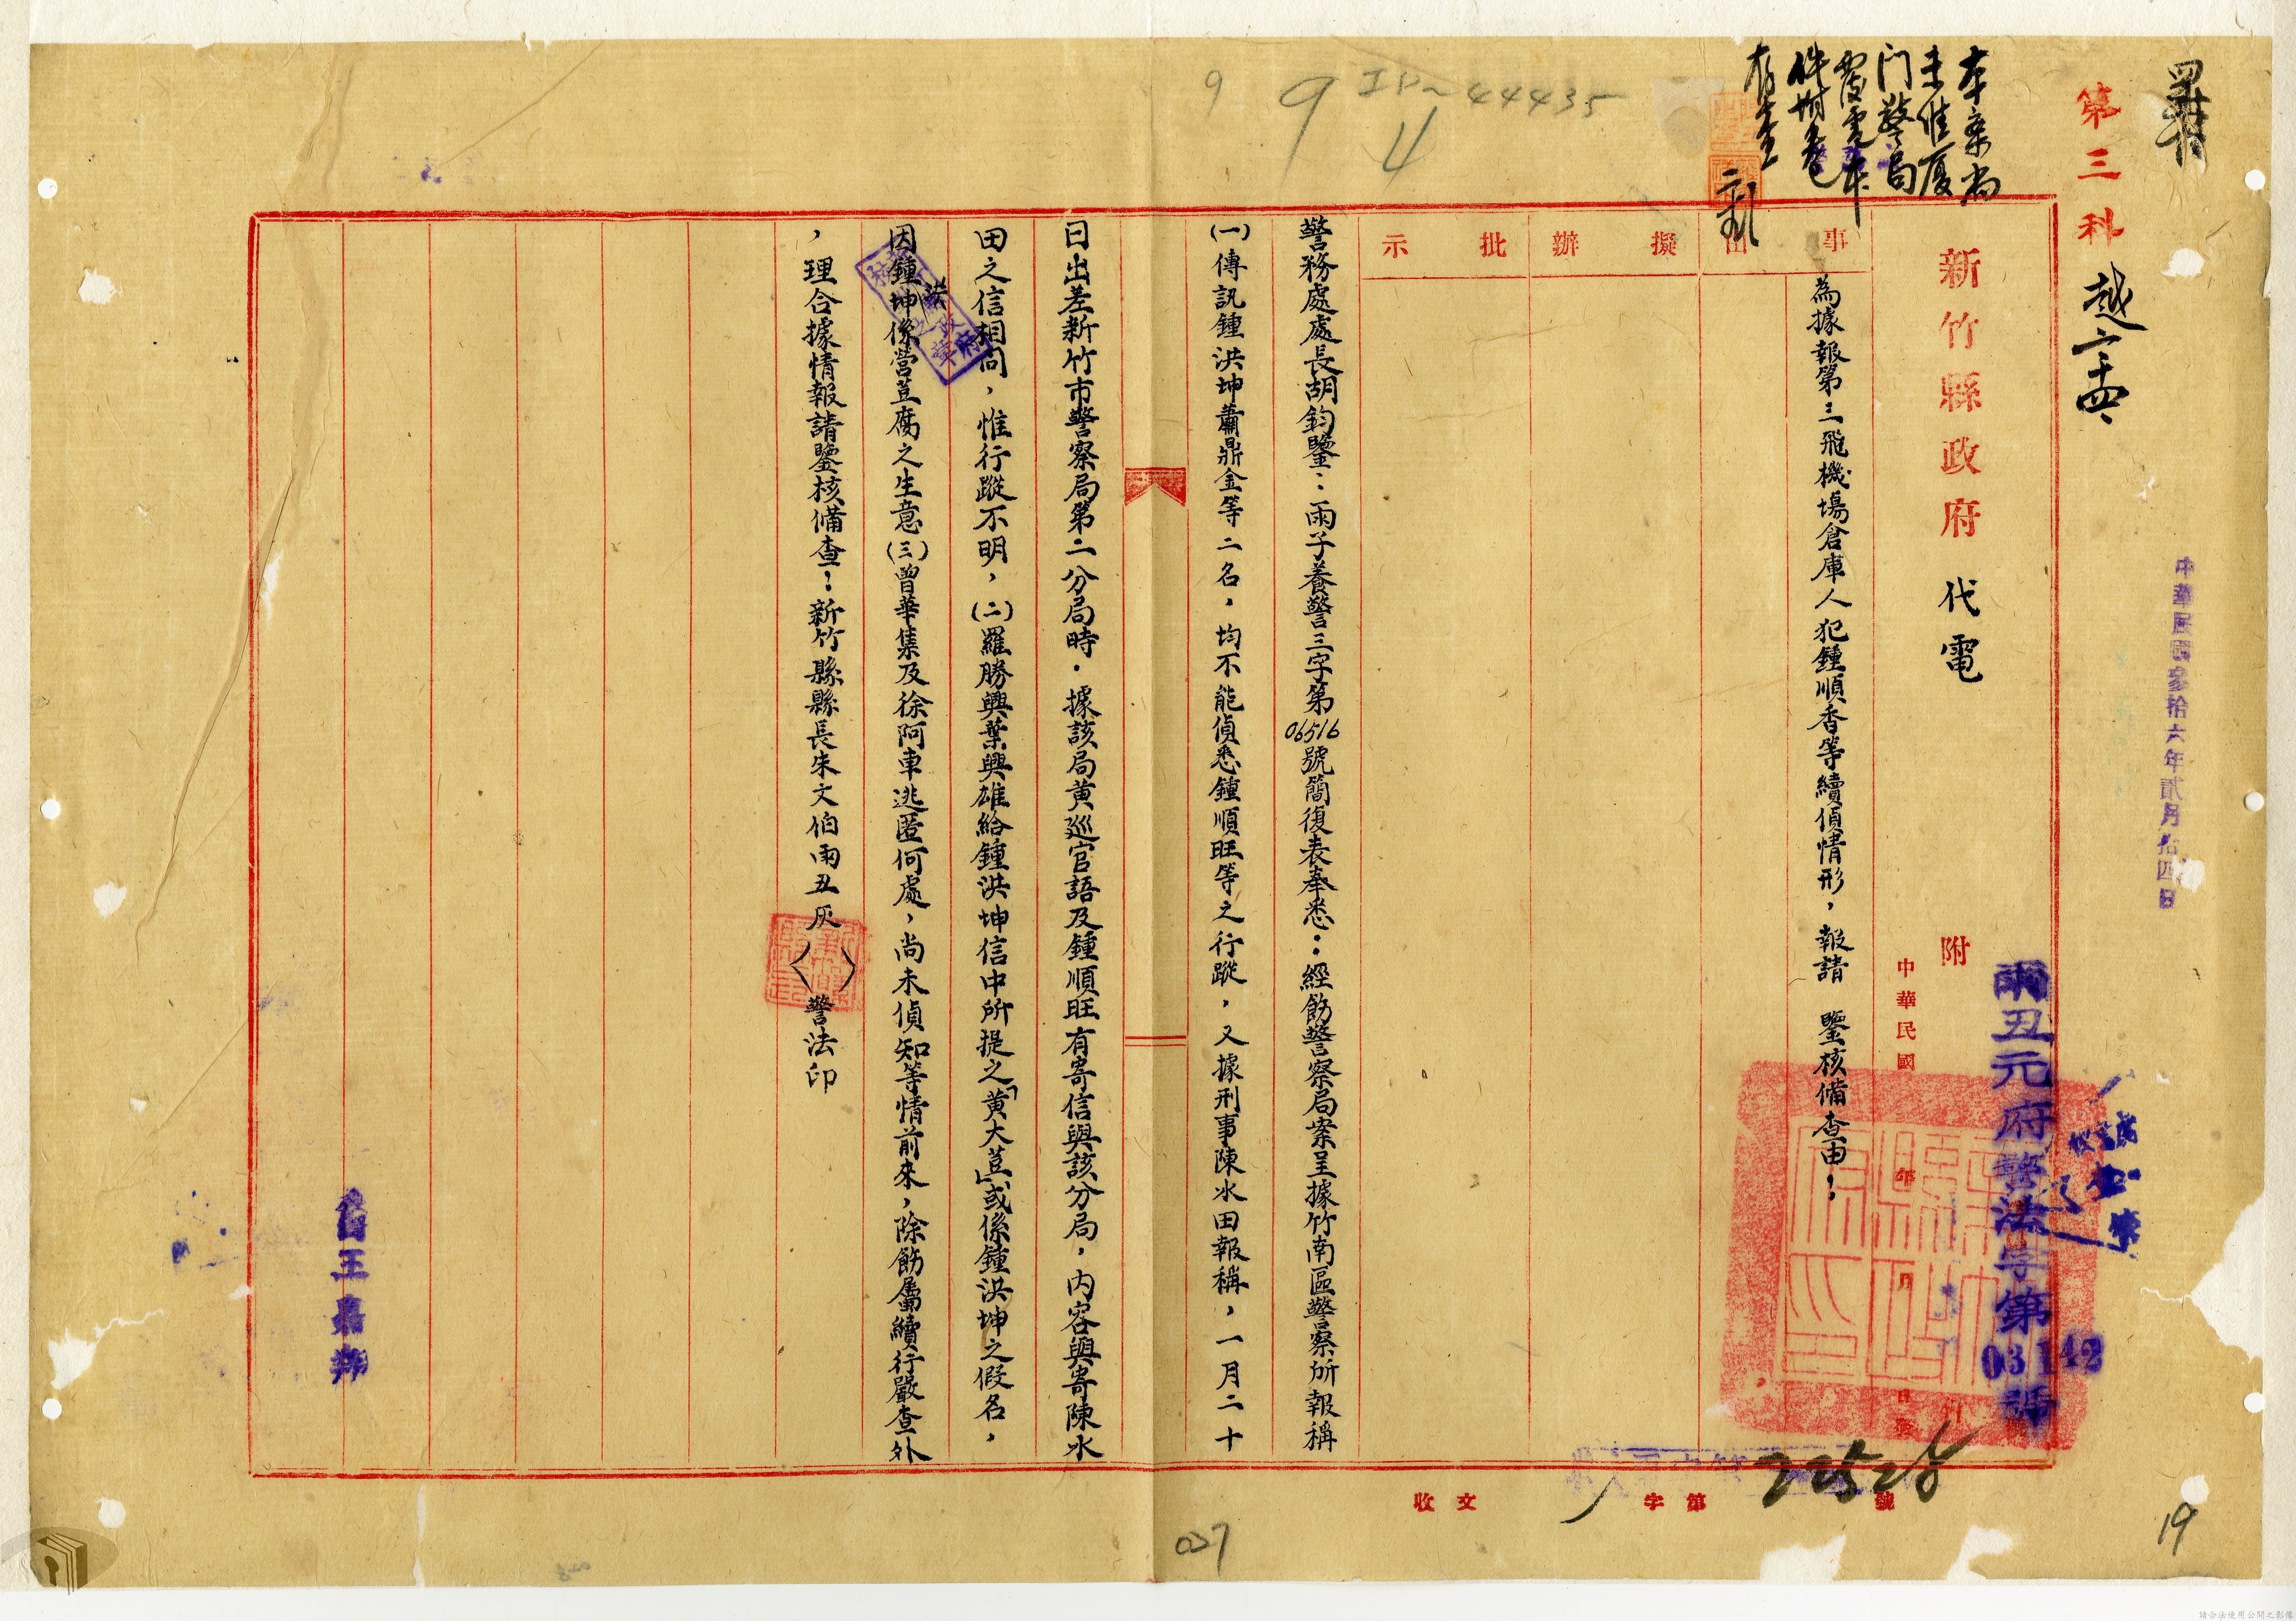 第三科
中華民國參拾六年貳月拾四日
本案尚
未准廈
门警局
覆電本
件附卷
存查
新竹縣政府 代電
附
中華民國 年 月 日
雨丑元府警法字第03142號
事由
為據報第三飛機場倉庫人犯鍾順香等續偵情形，報請 鑒核備查由：
擬辦
批示
警務處處長胡鈞鑒：雨子養警三字第06516號簡復表奉悉：經飭警察局案呈據竹南區警察所報稱
(一)傳訊鍾洪坤蕭鼎金等二名，均不能偵悉鍾順旺等之行蹤，又據刑事陳水田報稱，一月二十
日出差新竹市警察局第二分局時．據該局黄巡官語及鍾順旺有寄信與該分局，内容與寄陳水
田之信相同，惟行蹤不明，(二)羅勝興葉興雄給鍾洪坤信中所提之「黄大荳」或係鍾洪坤之假名，
因鍾洪坤係營荳腐之生意(三)曾華集及徐阿車逃匿何處，尚未偵知等情前來，除飭屬續行嚴查外
，理合據情報請鑒核備查：新竹縣縣長朱文伯雨丑灰〈〉警法印
收文 字第 22526 號
9
9
4
IP-44435
027
19
請合法使用公開之影像